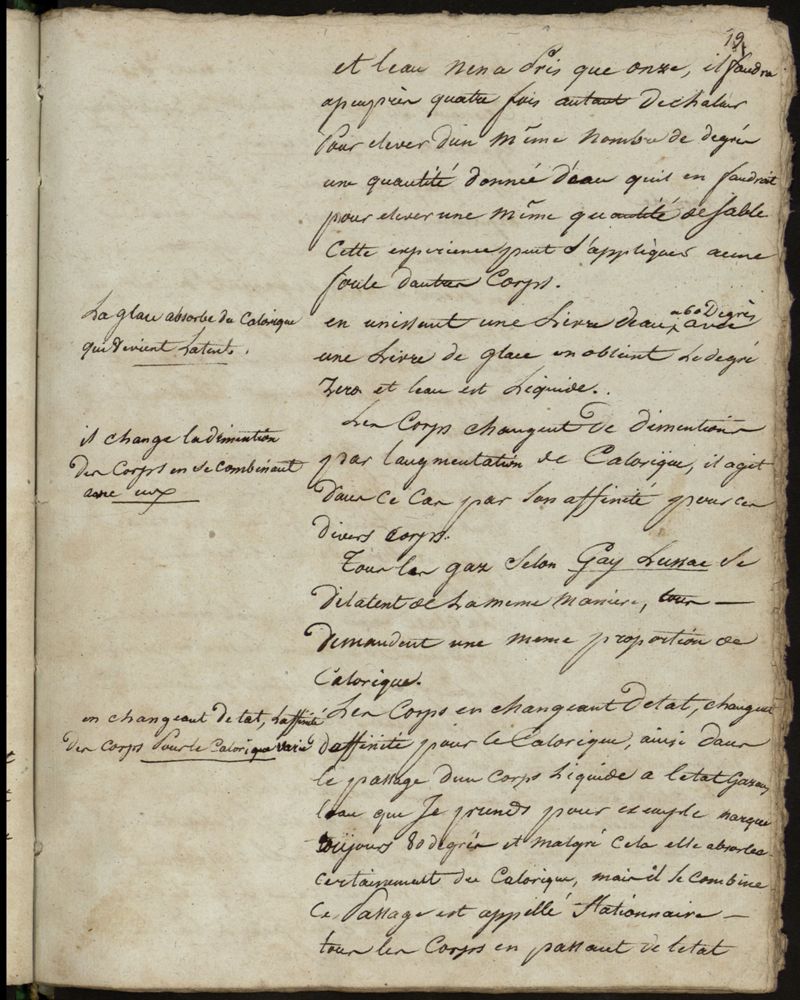 19
et leau nen a Pris que onze, il faudra
apeuprès quatre fois autant De chaleur
Pour elever d'un même nombre de degrés
une quantité donnée d'eau quil en faudroit
pour elever une même quantité de sable
Cette experience peut s'appliquer a une
foule dautres Corps.
La glace absorbe du Calorique
qui devient Latent.
en unissant une Livre deau a 60 Degrès avec
une Livre de glace on obtient Le degré
Zero et leau est Liquide.
il change la dimention
Des Corps en se combinant
avec eux
Les Corps changent De dimentions
par laugmentation de Calorique, il agit
dans ce cas par son affinité pour ces
divers corps.
Tous les gaz selon Gay Lussac se
dilatent de La meme maniere, tous —
demandent une meme proportion de
Calorique.
en changeant detat, Laffinité
Des Corps Pour le Calorique varie
Les Corps en changeant Detat, changent
daffinité pour le Calorique, ainsi dans
le passage dun Corps Liquide a letat Gazeux
leau que Je prends pour exemple marque
toujours 80 degrés et malgré cela elle absorbe
certainement du Calorique, mais il se combine
Ce Passage est appellé Stationnaire —
tous les Corps en passant de letat